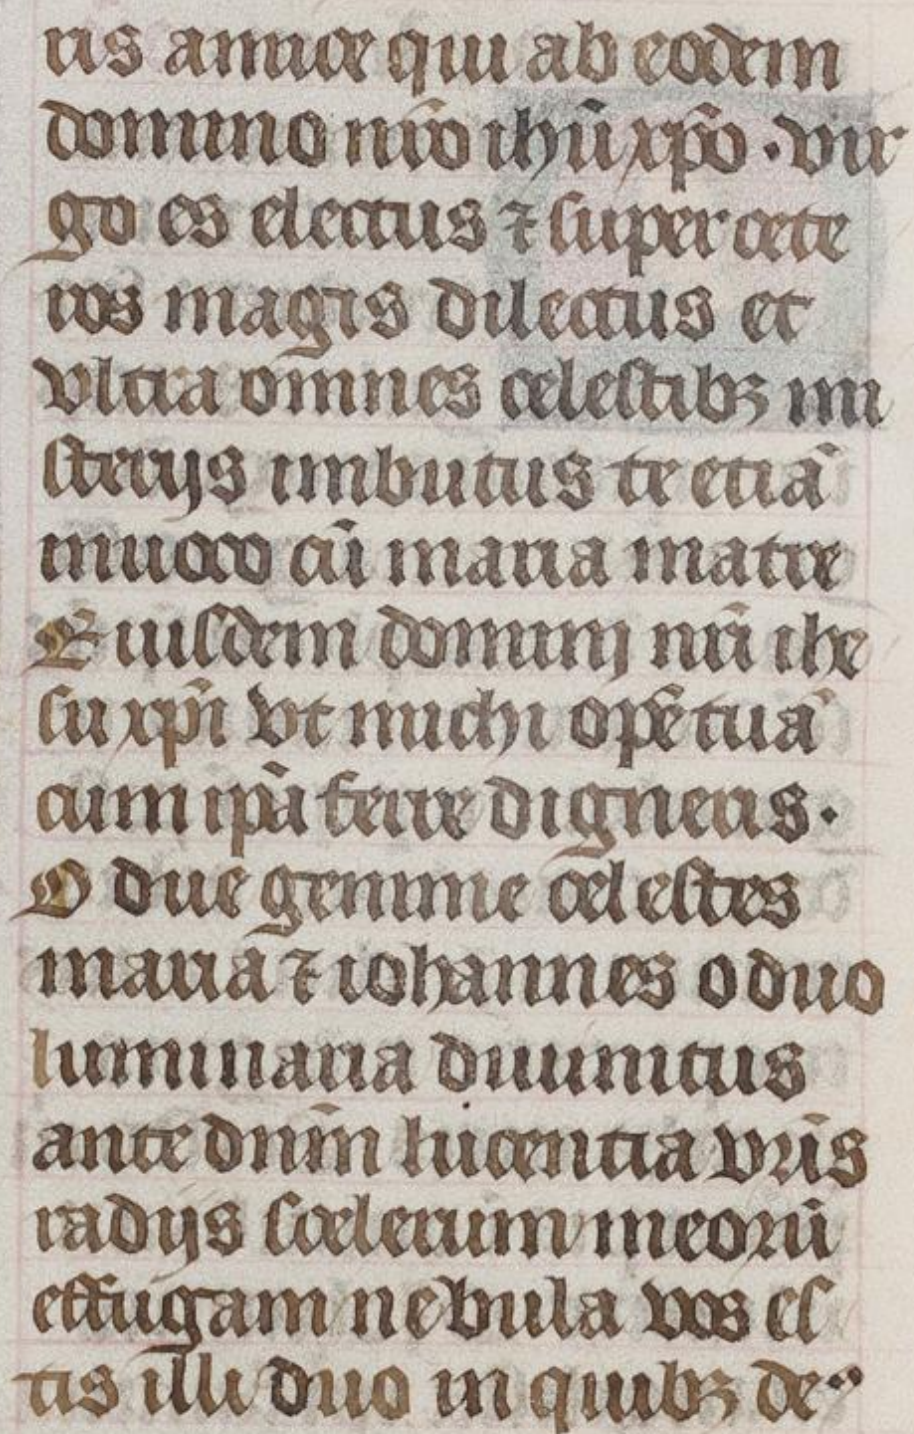 ris amice qui ab eodem
domino nr̄o ihū xp̄o · vir
go es electus ⁊ super cete
ros magis dilectus et
vltra omnes celestibꝫ mi
sterijs imbutus te etiā
inuoco cū maria matre
Eiusdem dominj nr̄i ihe
su xp̄i vt michi opē tuā
cum ip̄a ferre digneris ·
O due gemme celestes
maria ⁊ iohannes o duo
luminaria diuinitus
ante dn̄m lucentia vr̄is
radijs scelerum meorū
effugam nebula vos es
tis illi duo in quibꝫ de